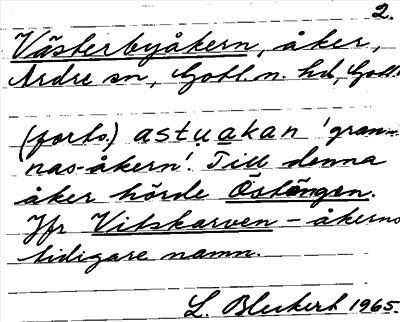 2.
Västerbyåkern, åker,
Ardre sn, Gotl. n. hd, Gotl.
(forts.) astuakan 'gran-
nas-åkern'. Till denna
åker hörde Östängen.
Jfr Vitskarven – åkerns
tidigare namn.
L. Bleckert 1965.